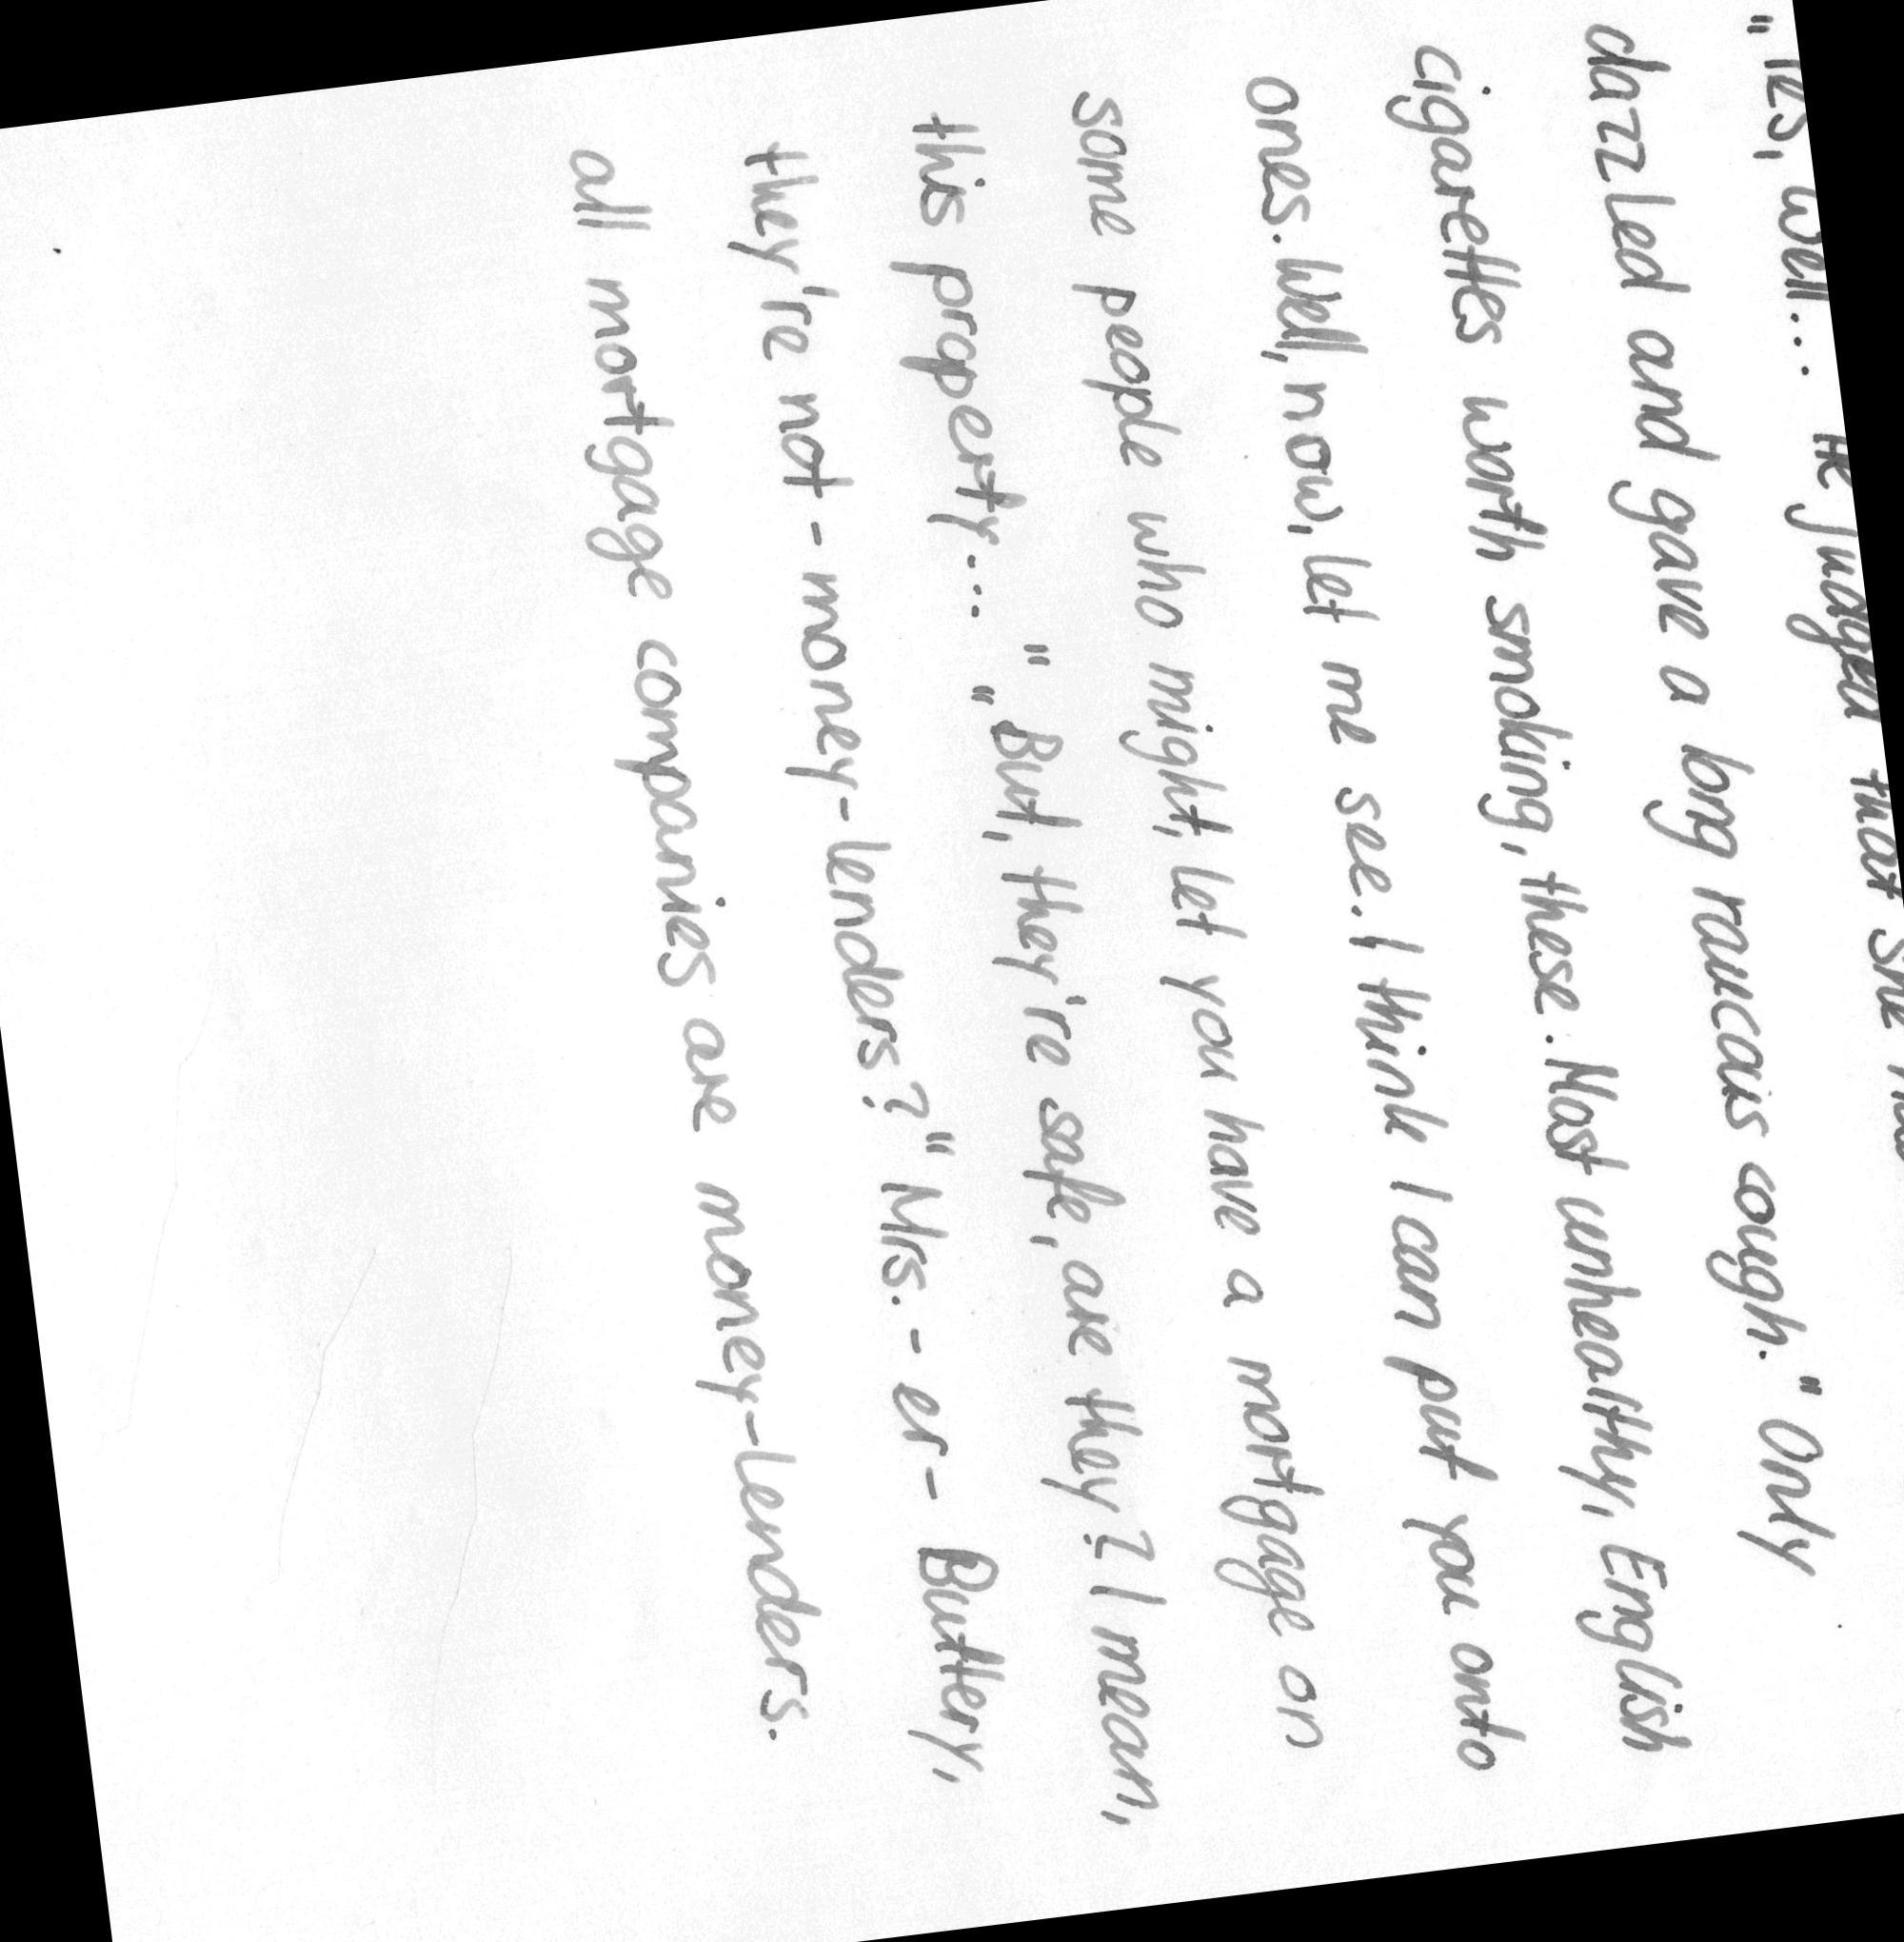 "Yes, well... He judged that she
dazzled and gave a long raucous cough. "Only
cigarettes worth smoking, these. Most unhealthy, English
ones. Well, now, let me see. I think I can put you onto
some people who might, let you have a mortgage on
this property... " "But, they're safe, are they? I mean,
they're not - money-lenders?" Mrs. - er - Buttery,
all mortgage companies are money-lenders.